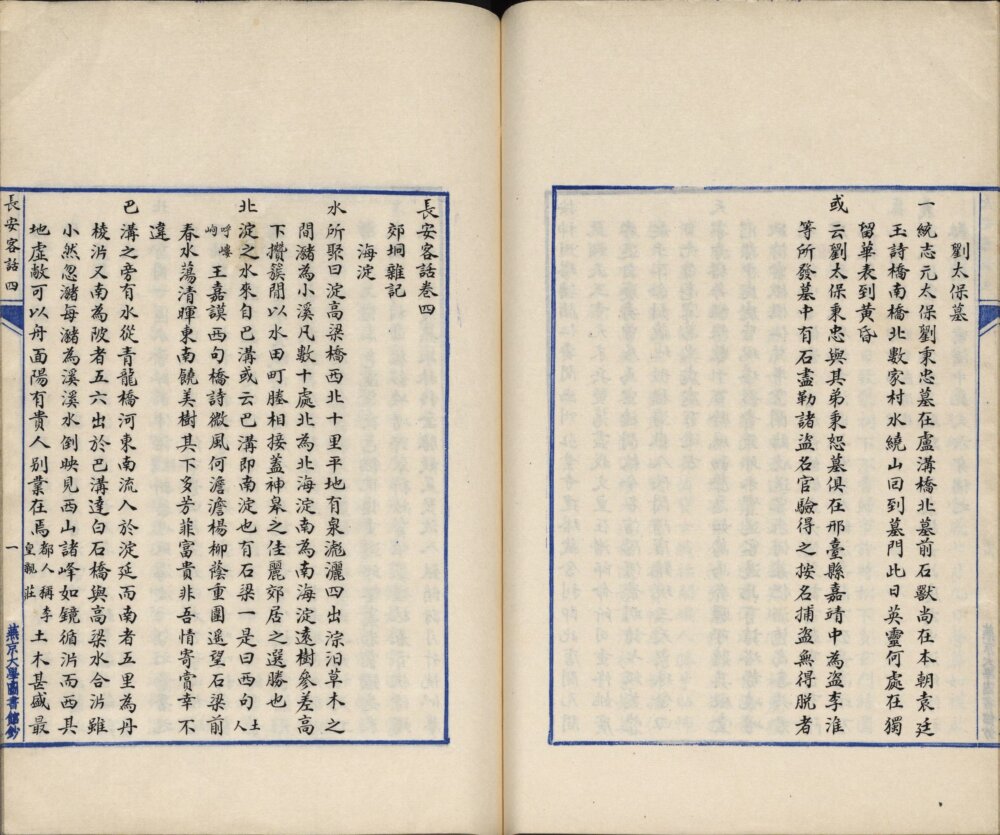 劉太保墓
一統志元太保劉秉忠墓在盧溝橋北墓前石獸尚在本朝袁廷
玉詩橋南橋北數家村水繞山回到墓門此日英靈何處在獨
留華表到黃昏
或云劉太保秉忠與其弟秉恕墓俱在邢臺縣嘉靖中為盜李淮
等所發墓中有石盡勒諸盜名官驗得之按名捕盜無得脫者
長安客話卷四
郊坰雜記
海淀
水所聚曰淀高梁橋西北十里平地有泉滮灑四出淙汩草木之
間瀦為小溪凡數十處北為北海淀南為南海淀遠樹參差高
下攢簇間以水田町塍相接蓋神皋之佳麗郊居之選勝也
北淀之水來自巴溝或云巴溝即南淀也有石梁一是曰西勾土人
呼嘍岣王嘉謨西勾橋詩微風何澹澹楊柳蔭重圍遙望石梁前
春水蕩清暉東南饒美樹其下多芳菲富貴非吾情寄賞幸不
違
巴溝之旁有水從青龍橋河東南流入於淀延而南者五里為丹
稜沜又南為陂者五六出於巴溝達白石橋與高梁水合沜雖
小然忽瀦每瀦為溪溪水倒映見西山諸峰如鏡循沜而西其
地虛敞可以舟面陽有貴人別業在焉都人稱李皇親莊土木甚盛最
長安客話四
一
燕京大學圖書館鈔